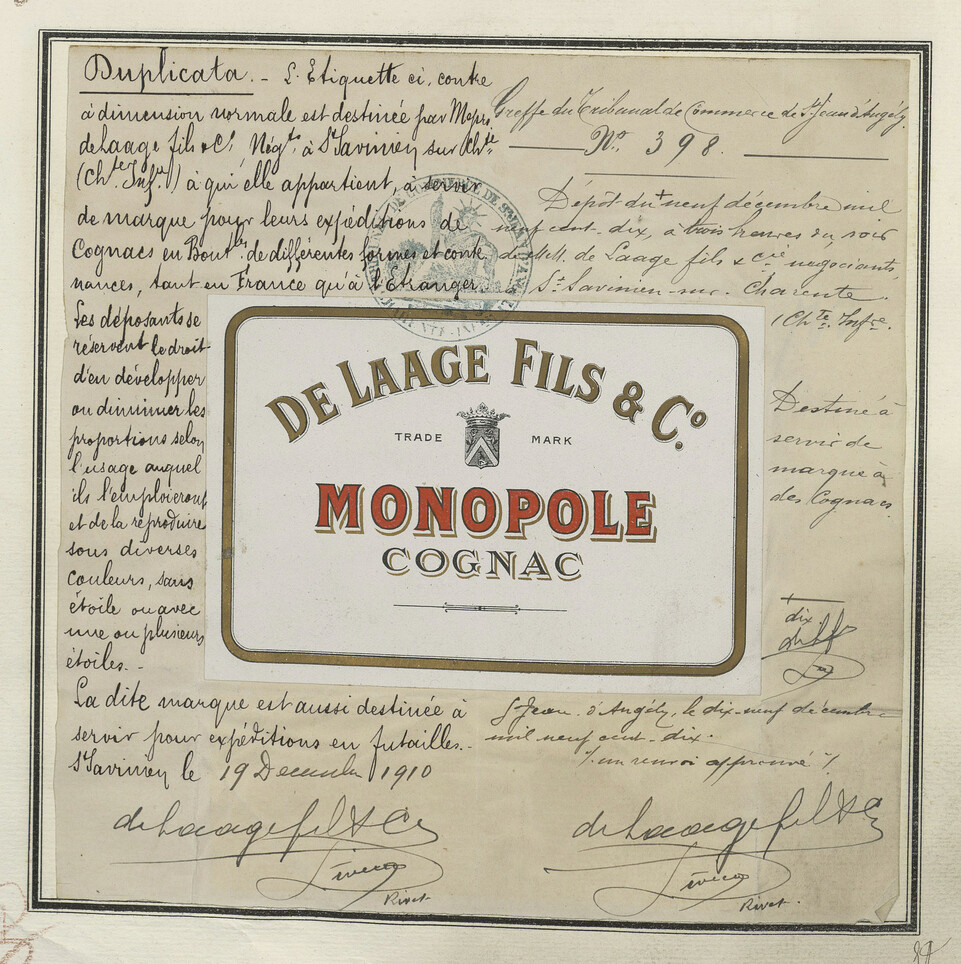 Duplicata. - L'Etiquette ci, contre
à dimension normale est destinée par Messrs
de Laage fils & Cie Négts à St Savinien sur Chte
(Chte Infre) à qui elle appartient, à servir
de marque pour leurs expéditions de
Cognacs en Bouteilles de différentes formes et conte
nances, tant en France qu'à l'Etranger.
Les déposants se
réservent le droit
d'en développer
ou diminuer les
proportions selon
l'usage auquel
ils l'emploieront
et de la reproduire
sous diverses
couleurs, sans
étoile ou avec
une ou plusieurs
étoiles. -
La dite marque est aussi destinée à
servir pour expéditions en futailles. -
St Savinien le 19 Decembre 1910
de Laage fils & Co
Rivet
Greffe du Tribunal de Commerce de St Jean d'Angély.
No. 398.
Dépôt du + neuf décembre mil
neuf cent-dix, à trois heures du soir
de MM. de Laage fils & Cie négociants
St Savinien-sur-Charente.
(Chte Infre.
Destiné à
servir de
marque à
des Cognacs.
+
dix
St Jean d'Angély, le dix-neuf décembre
mil neuf cent-dix.
/. un renvoi approuvé /.
de Laage fils & Co
Rivet.
DE LAAGE FILS & Co.
TRADE MARK
MONOPOLE
COGNAC